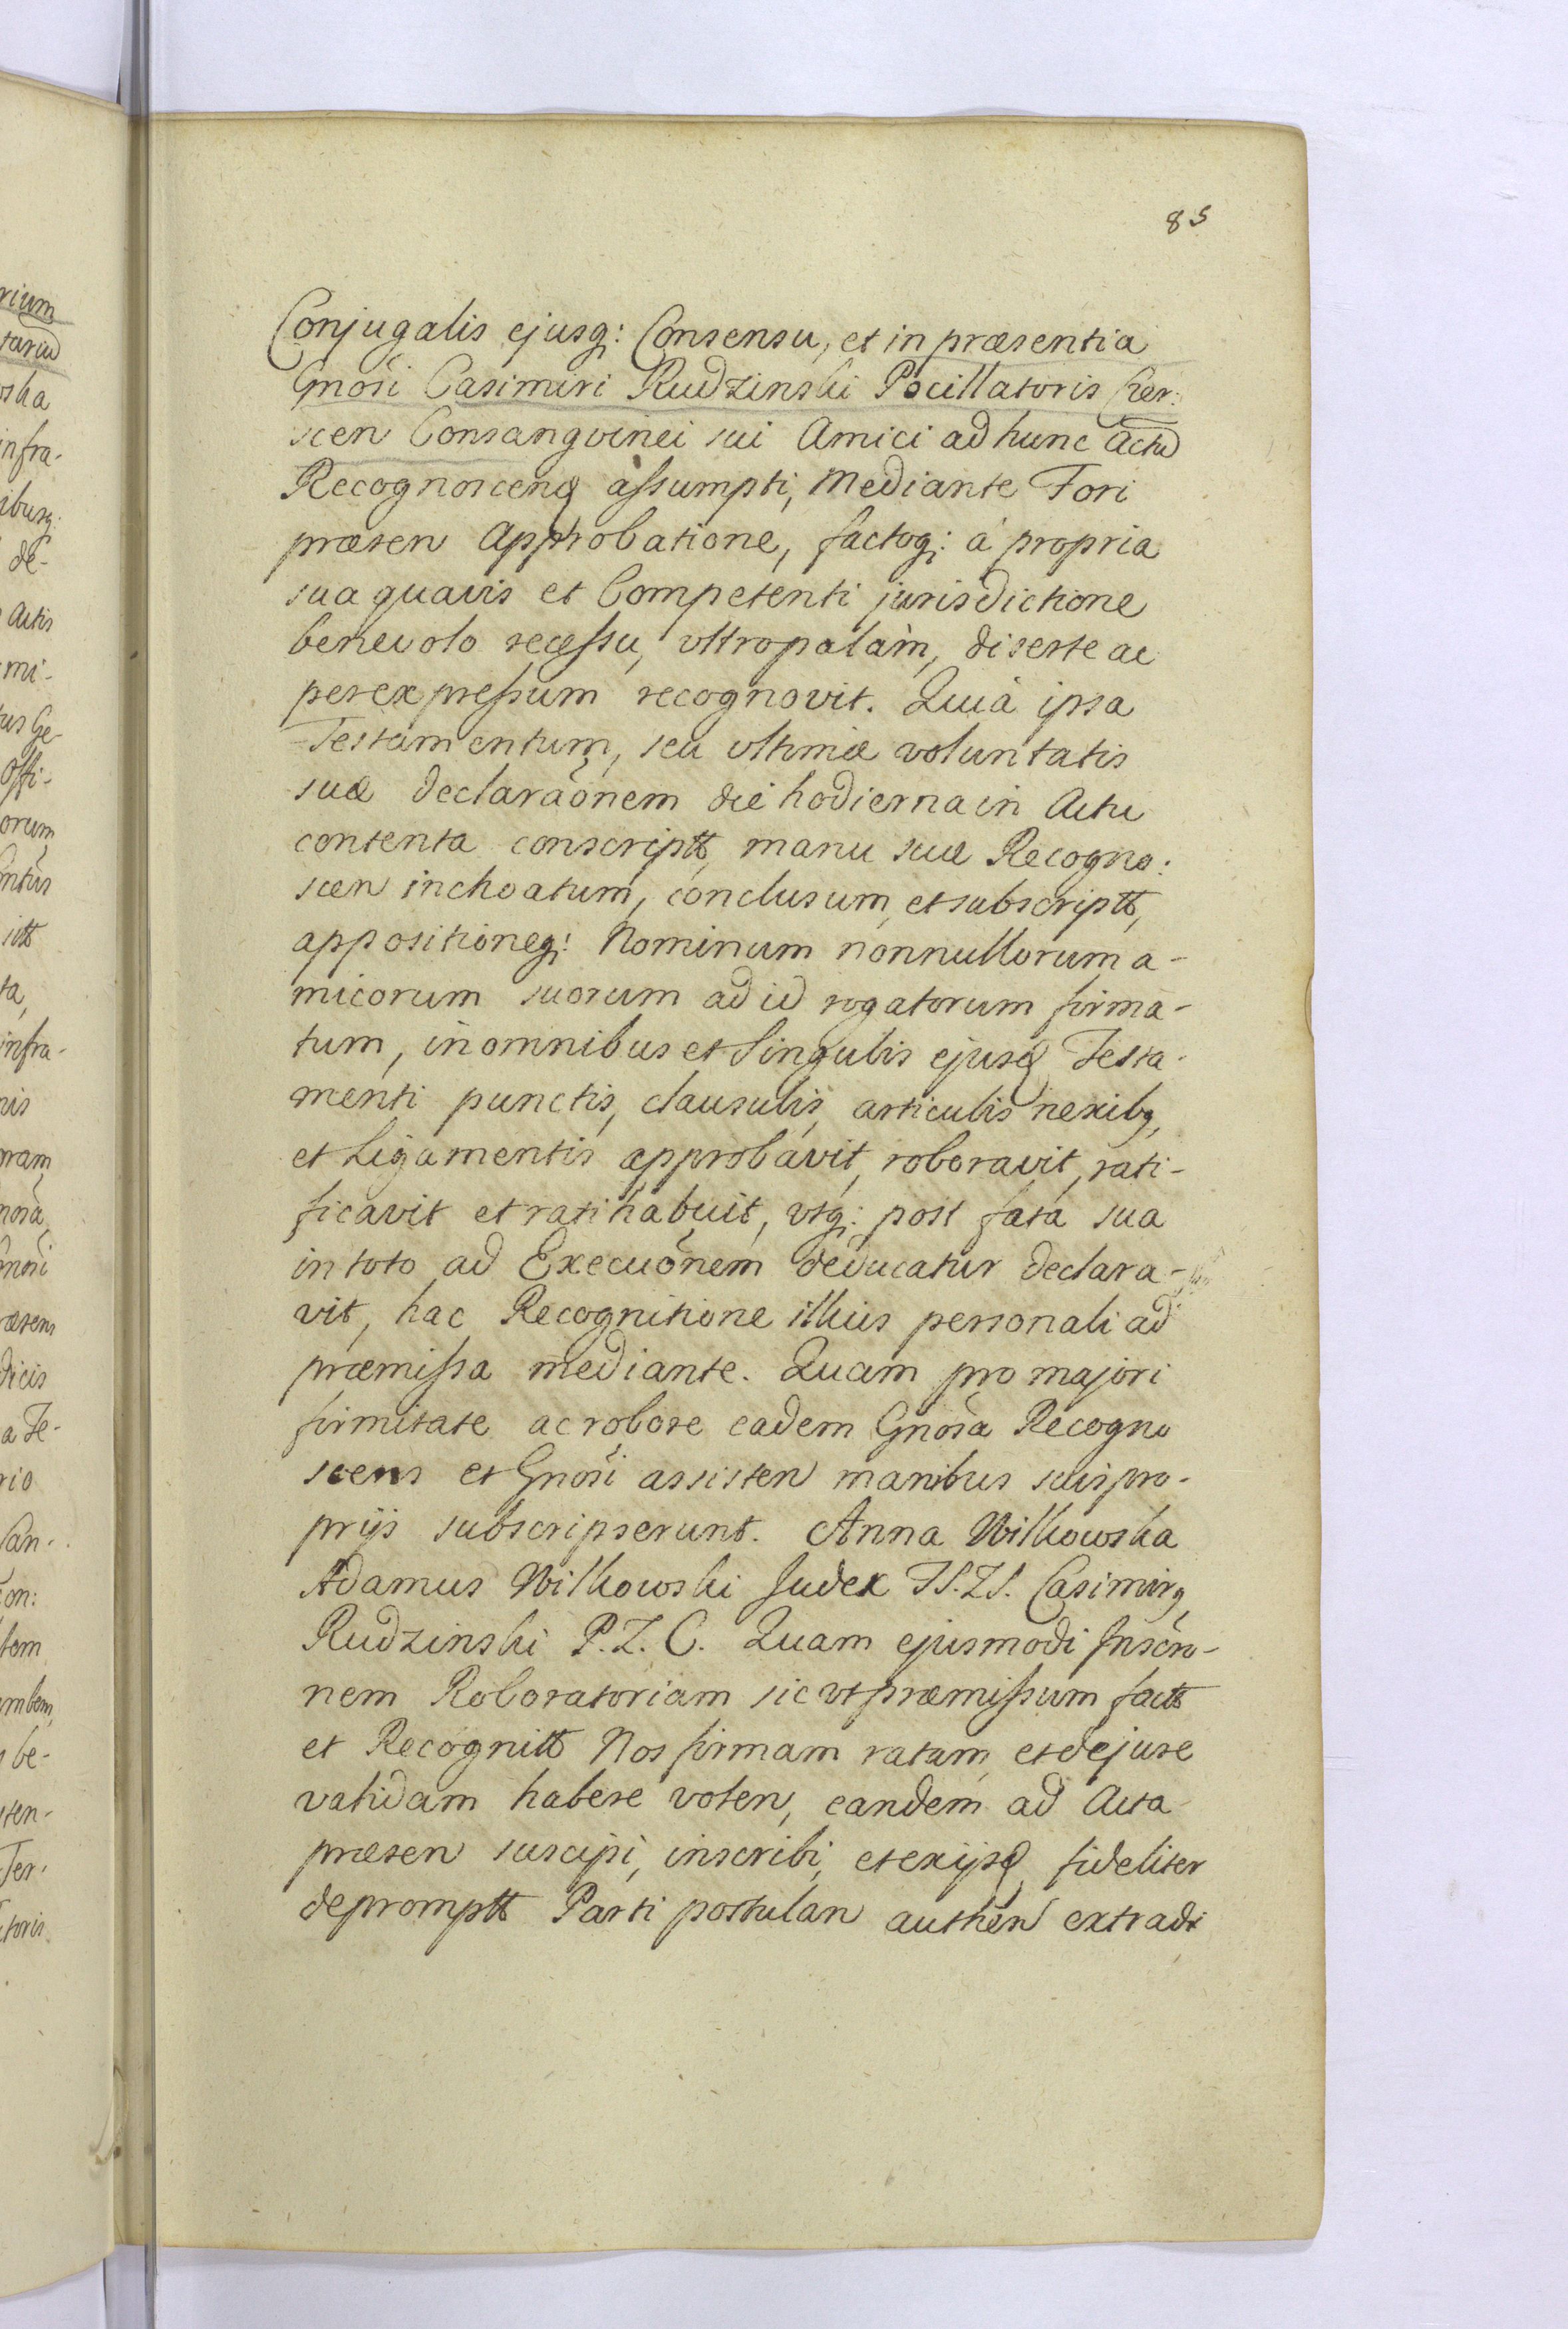 85
Conjugalis ejusq: Consensu, et in præsentia
Gnosi Casimiri Rudzinski Pocillatoris Cher:
scen Consangvinei sui Amici ad hunc Actũ
Recognoscend assumpti, Mediante Fori
præsen Approbatione, factoq: á propria
sua quavis et Competenti jurisdictione
benevolo recessu, vltro palàm, diserte ac
per expressum recognovit. Quià ipsa
Testamentum, seu vltimæ voluntatis
suæ declaraõnem die hodierna in Actu
contenta conscriptt, manu suæ Recogno:
scen inchoatum, conclusum et subscriptt,
appositioneq: Nominum nonnullorum a-
micorum suorum ad id rogatorum firma-
tum, in omnibus et Singulis ejusd Testa-
menti punctis, clausulis, articulis nexibq,
et Ligamentis approbavit, roboravit, rati-
ficavit et ratihabuit, vtq: post fata sua
in toto ad Execuõnem deducatur declara-
vit, hac Recognitione illius personali ad
præmissa mediante. Quam pro majori
firmitate ac robore eadem Gnosa Recogno
scens et Gnosi assisten manibus suis pro-
prijs subscripserunt. Anna Wilkowska
Adamus Wilkowski Judex
Casimirq
Rudzinski P. Z. C. Quam ejusmodi Inscrio-
nem Roboratoriam sic vt præmissum factt
et Recognitt Nos firmam ratam et de jure
validam habere volen, eandem ad Acta
præsen suscipi, inscribi, et exijsd fideliter
depromptt Parti postulan authen extradi